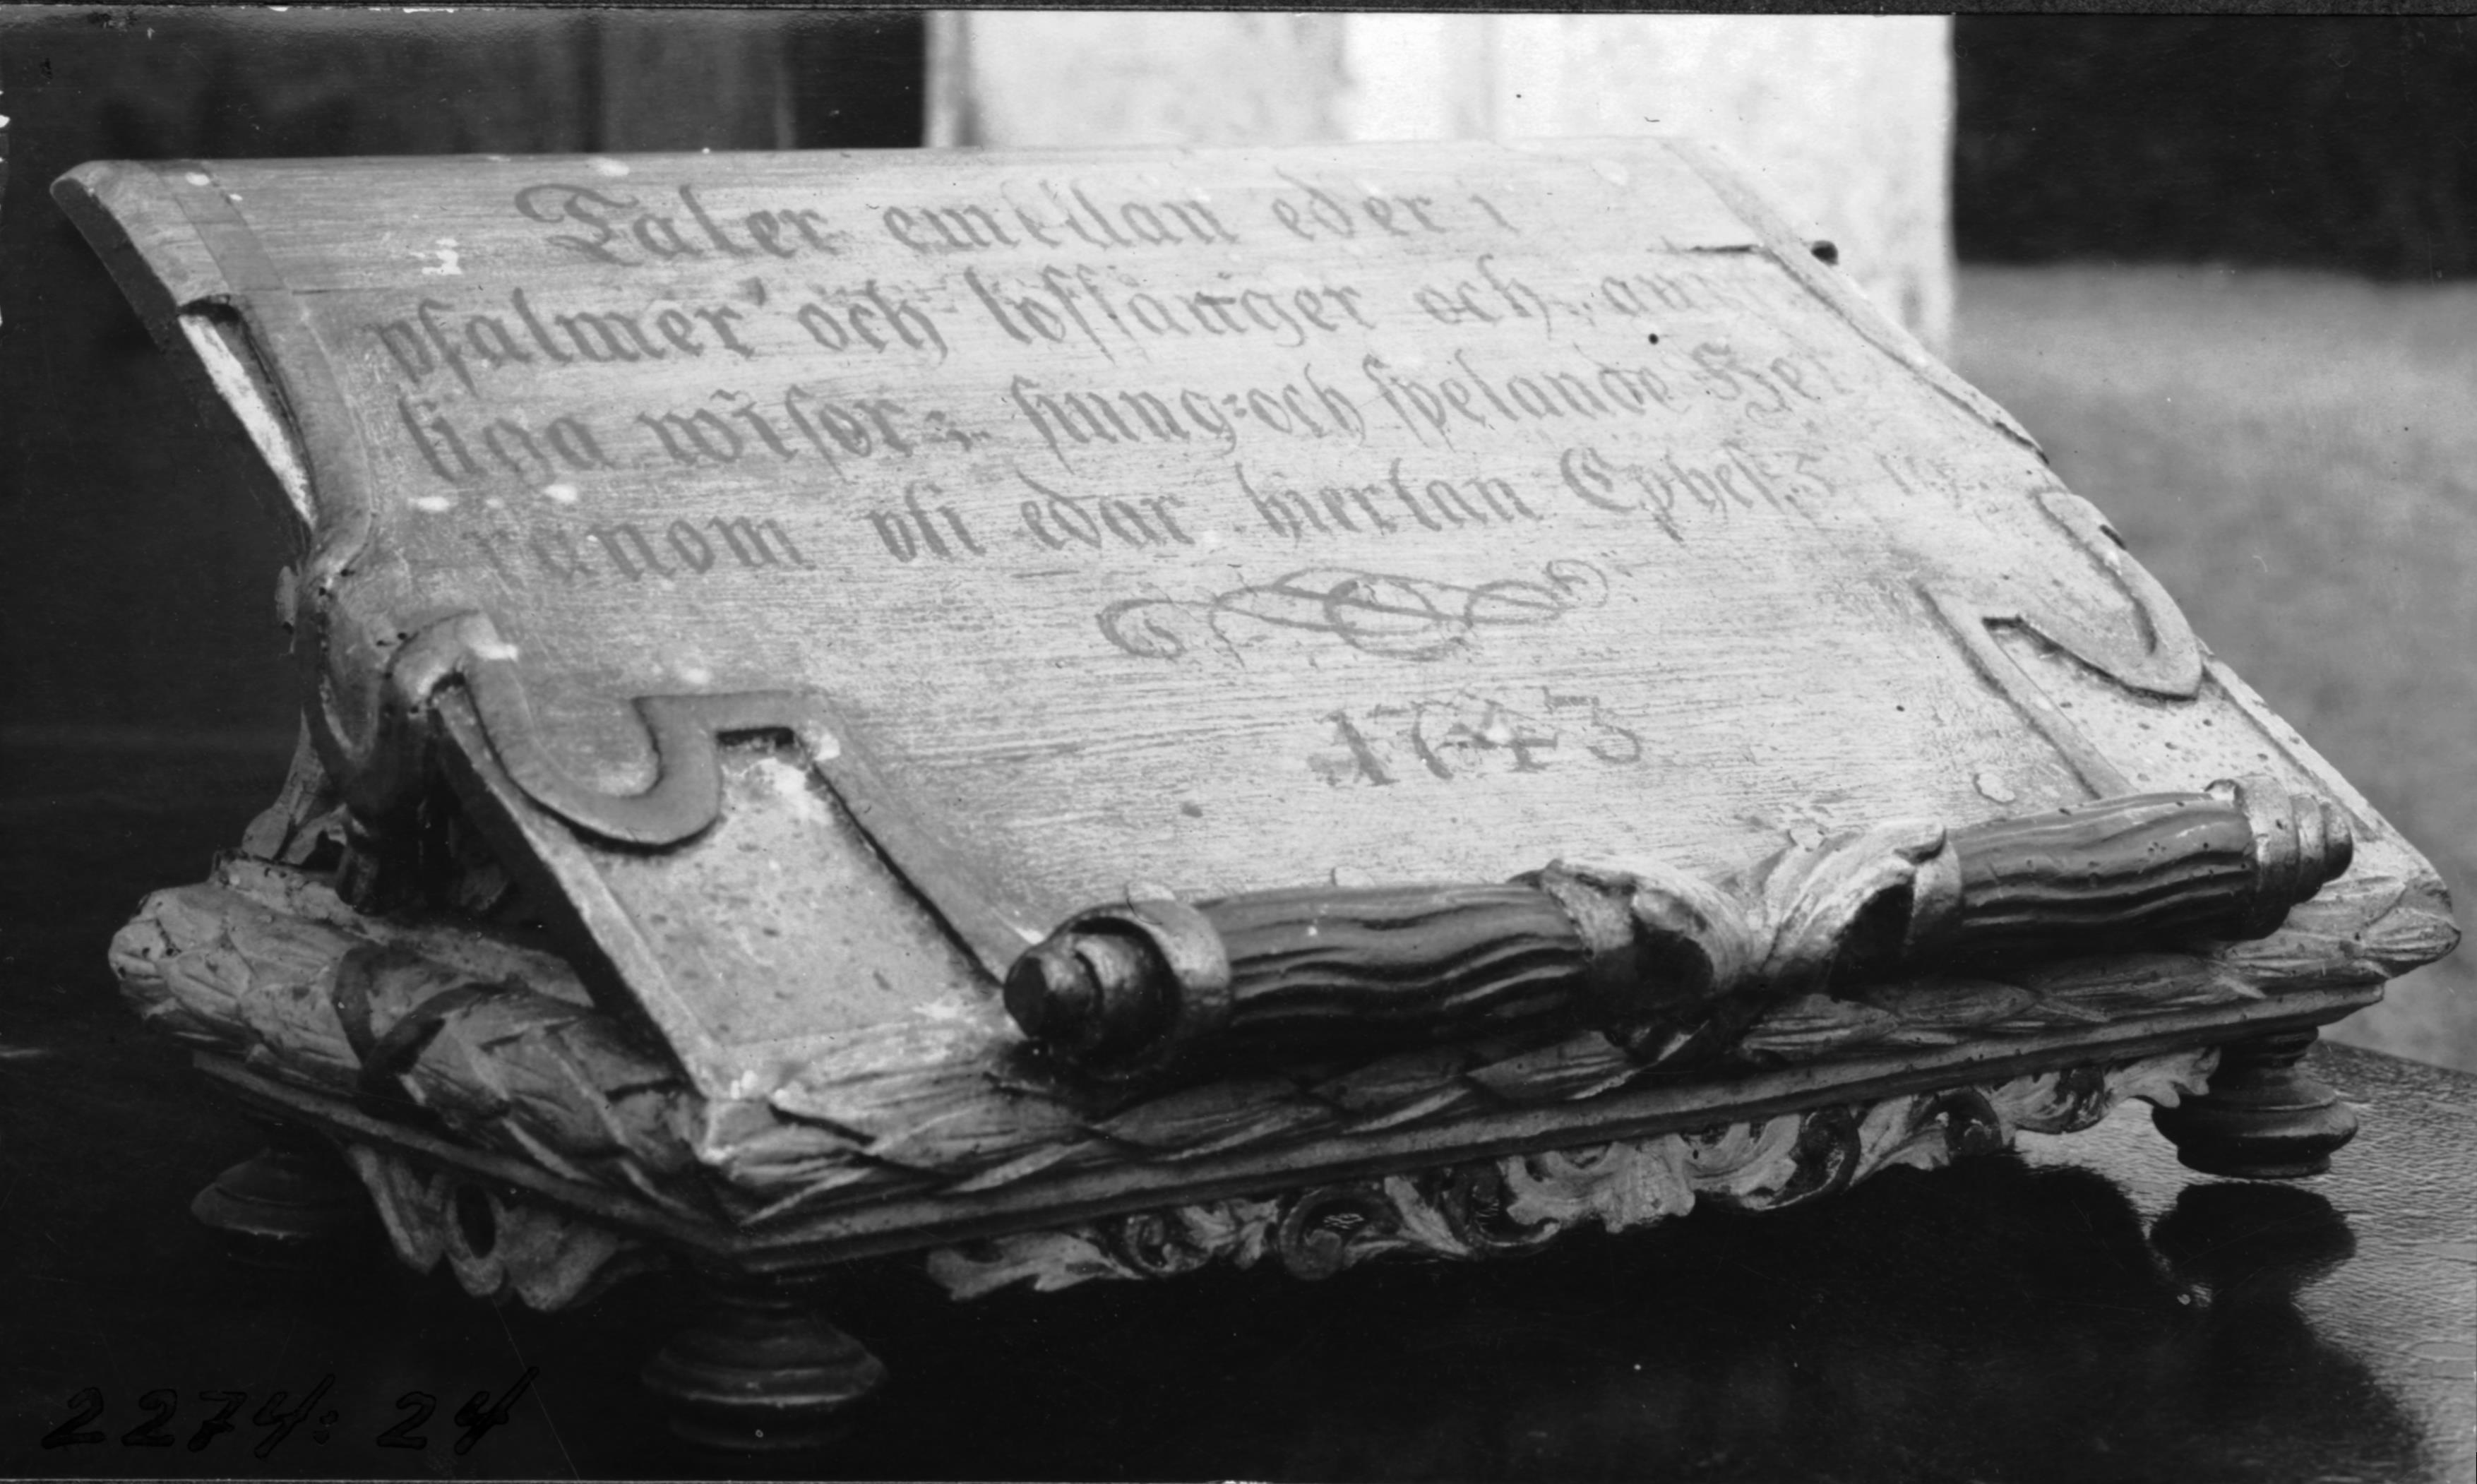 Taler emellan eder i
psalmer och lofsånger och an
liga wisor, siung=och spelande Her
ranom vti edar hiertan Ephes. 5
1743
2274: 24